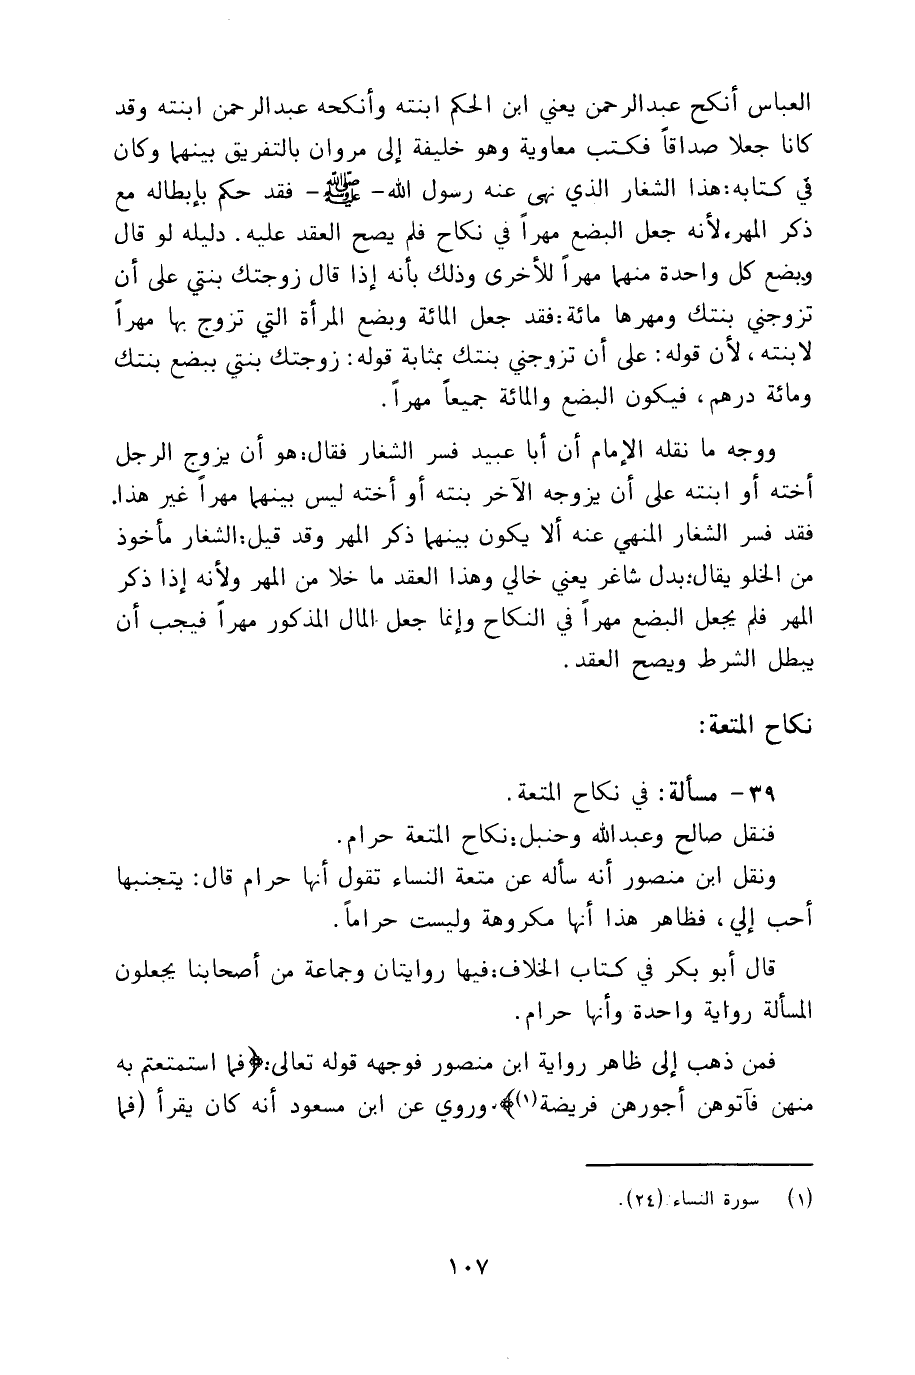 العباس أنكح عبدالرحمن يعني ابن الحكم ابنته وأنكحه عبدالرحمن ابنته وقد
كانا جعلا صداقاً فكتب معاوية وهو خليفة إلى مروان بالتفريق بينهما وكان
في كتابه:هذا الشغار الذي نهى عنه رسول الله- ﷺ- فقد حكم بإبطاله مع
ذكر المهر،لأنه جعل البضع مهراً في نكاح فلم يصح العقد عليه. دليله لو قال
وبضع كل واحدة منهما مهراً للأخرى وذلك بأنه إذا قال زوجتك بنتي على أن
تزوجني بنتك ومهرها مائة:فقد جعل المائة وبضع المرأة التي تزوج بها مهراً
لابنته، لأن قوله: على أن تزوجني بنتك بمثابة قوله: زوجتك بنتي ببضع بنتك
ومائة درهم، فيكون البضع والمائة جميعاً مهراً.
ووجه ما نقله الإمام أن أبا عبيد فسر الشغار فقال:هو أن يزوج الرجل
أخته أو ابنته على أن يزوجه الآخر بنته أو أخته ليس بينهما مهراً غير هذا.
فقد فسر الشغار المنهي عنه ألا يكون بينهما ذكر المهر وقد قيل:الشغار مأخوذ
من الخلو يقال:بدل شاغر يعني خالي وهذا العقد ما خلا من المهر ولأنه إذا ذكر
المهر فلم يجعل البضع مهراً في النكاح وإنما جعل المال المذكور مهراً فيجب أن
يبطل الشرط ويصح العقد.
نكاح المتعة:
٣٩- مسألة: في نكاح المتعة.
فنقل صالح وعبدالله وحنبل:نكاح المتعة حرام.
ونقل ابن منصور أنه سأله عن متعة النساء تقول أنها حرام قال: يتجنبها
أحب إلي، فظاهر هذا أنها مكروهة وليست حراماً.
قال أبو بكر في كتاب الخلاف:فيها روايتان وجماعة من أصحابنا يجعلون
المسألة رواية واحدة وأنها حرام.
فمن ذهب إلى ظاهر رواية ابن منصور فوجهه قوله تعالى:﴿فما استمتعتم به
منهن فآتوهن أجورهن فريضة(١)﴾.وروي عن ابن مسعود أنه كان يقرأ (فما
(١) سورة النساء (٢٤).
١٠٧